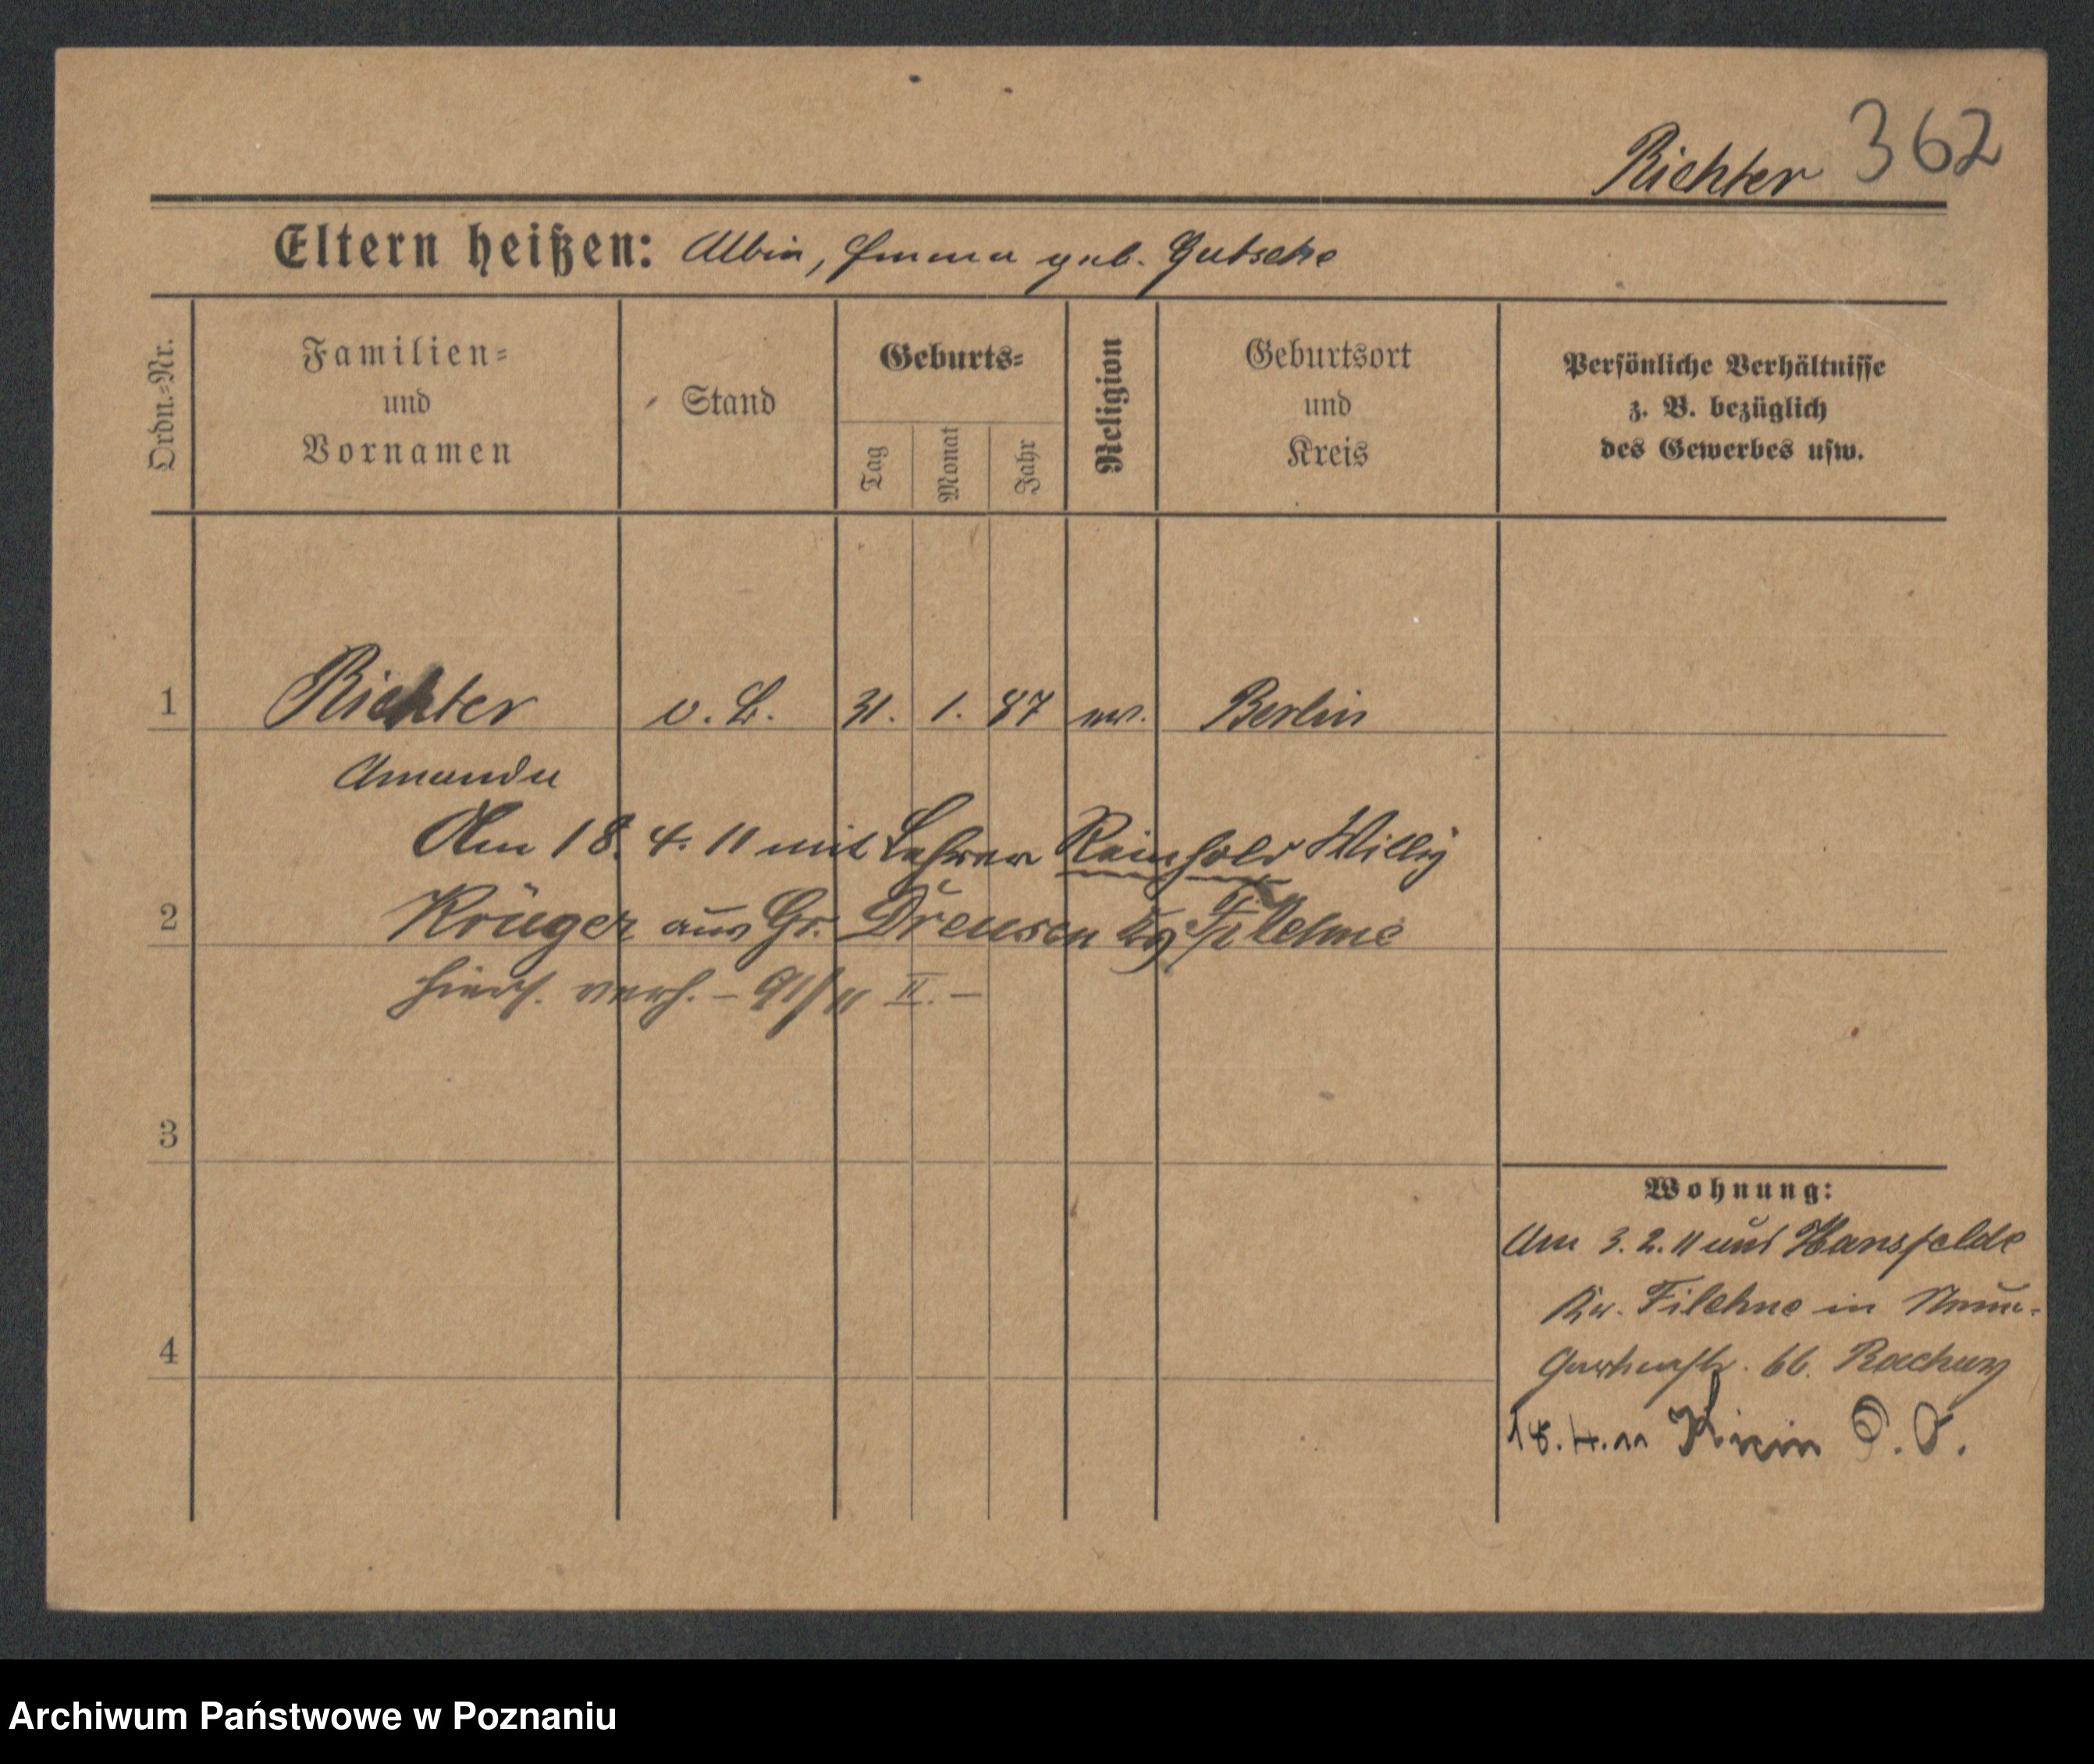 Richter 362
Eltern heißen: Albin, Emma geb. Gutsche
Ordn.=Nr.
Familien=
und
Vornamen
Stand
Geburts=
Tag
Monat
Jahr
Religion
Geburtsort
und
Kreis
Persönliche Verhältnisse
z. B. bezüglich
des Gewerbes usw.
1 Richter o. B. 31. 1. 87 ev. Berlin
Amanda
Am 18. 4. 11 mit Lehrer Reinhold Willy
2 Krüger aus Gr. Drensen Kr. Filehne
hiers. verh. – 91/11 II. –
3
4
Wohnung:
Am 3. 2. 11 aus Hansfelde
Kr. Filehne in
66.
18. 4. 11